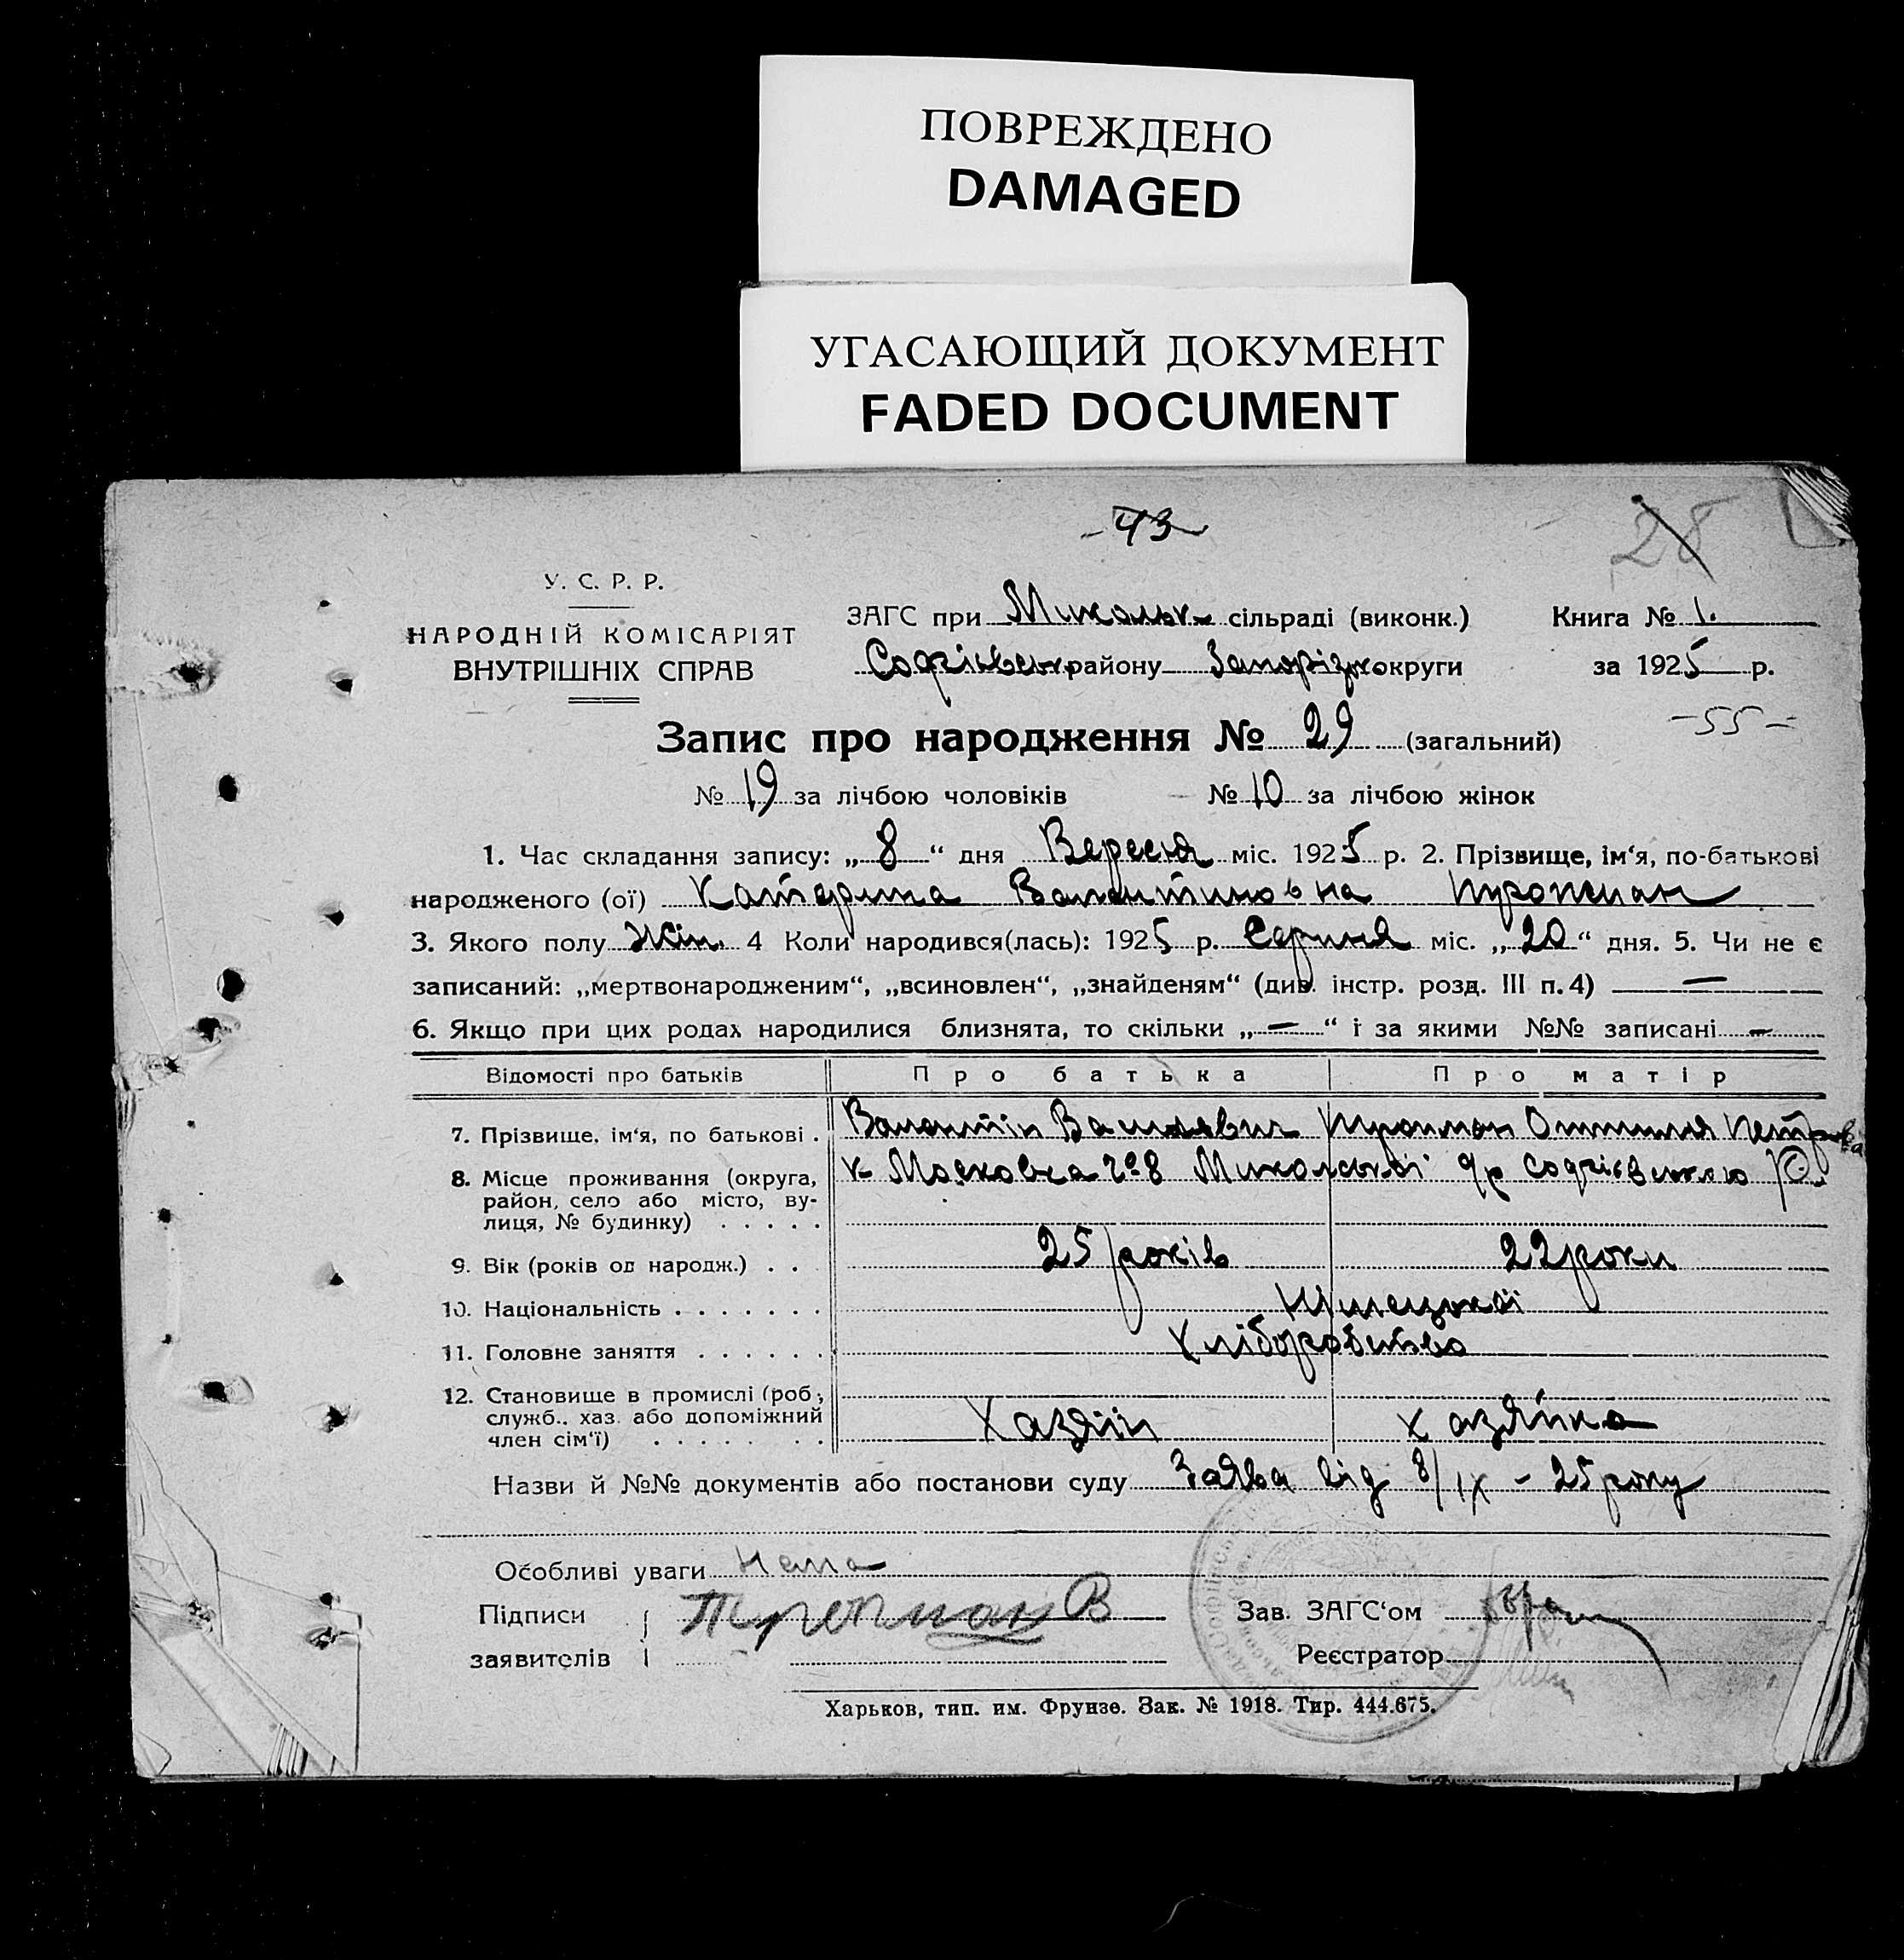 ПОВРЕЖДЕНО
DAMAGED
УГАСАЮЩИЙ ДОКУМЕНТ
FADED DOCUMENT
- 43 -
28
У. С. Р. Р.
НАРОДНІЙ КОМІСАРІЯТ
ВНУТРІШНІХ СПРАВ
ЗАГС при Микольк. сільраді (виконк.) Книга № 1.
Софіївськ. району Запоріз. округи за 1925 р.
- 55 -
Запис про народження № 29 (загальний)
№ 19 за лічбою чоловіків № 10 за лічбою жінок
1. Час складання запису: „ 8 “ дня Вересня міс. 1925 р. 2. Прізвище, ім‘я, по-батькові
народженого (ої) Катерина Валентиновна
3. Якого полу Жін. 4 Коли народився(лась): 1925 р. Серпня міс. „ 20 “ дня. 5. Чи не є
записаний: „мертвонародженим“, „всиновлен“, „знайденям“ (див. інстр. розд. III п. 4) —
6. Якщо при цих родах народилися близнята, то скільки „ — “ і за якими №№ записані —
Відомості про батьків Про батька Про матір
7. Прізвище, ім‘я, по батькові . Валентін Васильович Оттилія Петровна
8. Місце проживання (округа, к. Московка № 8 Микольської с/р Софіївського Р.
район, село або місто, ву-
лиця, № будинку) . . . . .
9. Вік (років од народж.) . . 25 років 22 роки
10. Національність . . . . . . . Німецької
11. Головне заняття . . . . . . Хліборобство
12. Становище в промислі (роб.,
служб., хаз. або допоміжний Хазяїн Хазяйка
член сім‘ї) . . . . . . . .
Назви й №№ документів або постанови суду Заява від 8/IX - 25 року
Особливі уваги Нема
Підписи В Зав. ЗАГС‘ом
заявителів Реєстратор
Харьков, тип. им. Фрунзе. Зак. № 1918. Тир. 444.675.